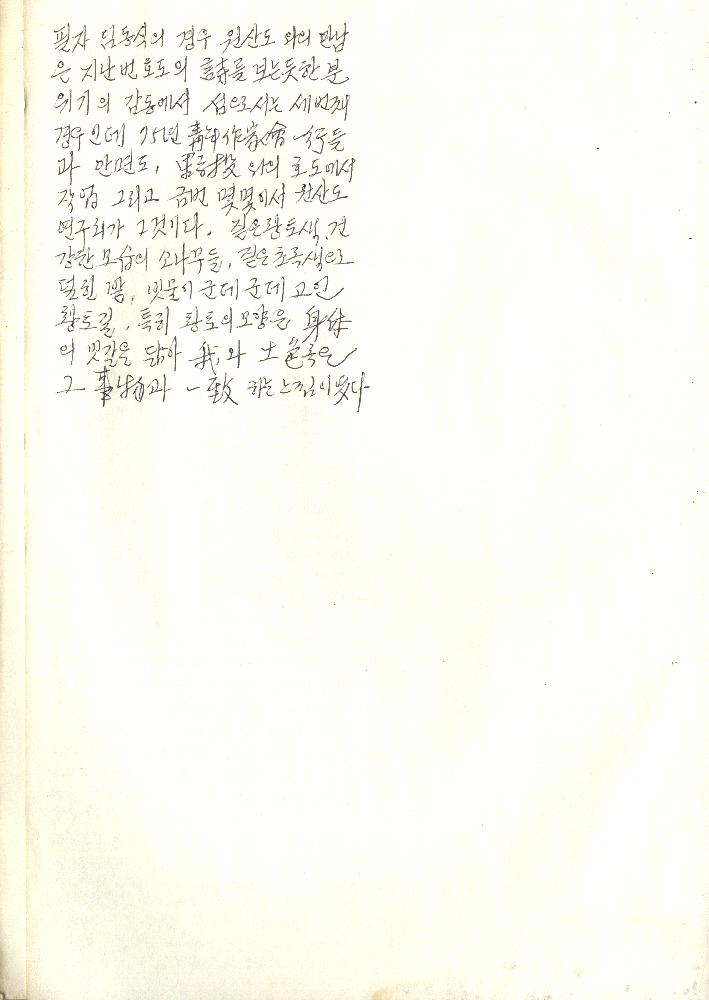 필자 임동식의 경우 원산도 와의 만남
은 지난번 호도의 詩를 보는듯한 분
위기의 감동에서 섬으로서는 세번째
경우인데 75년 靑年作家會 식구들
과 안면도, 와의 호도에서
작업 그리고 금번 몇몇이서 원산도
연구회가 그것이다. 짙은황토색, 건
강한 모습의 소나무들, 짙은초록색으로
덮힌 밭, 빗물이 군데군데 고인
황토길, 특히 황토의 모양은 身体
의 빛깔을 닮아 我와 土色혹은
그 事物과 一致 하는느낌이었다